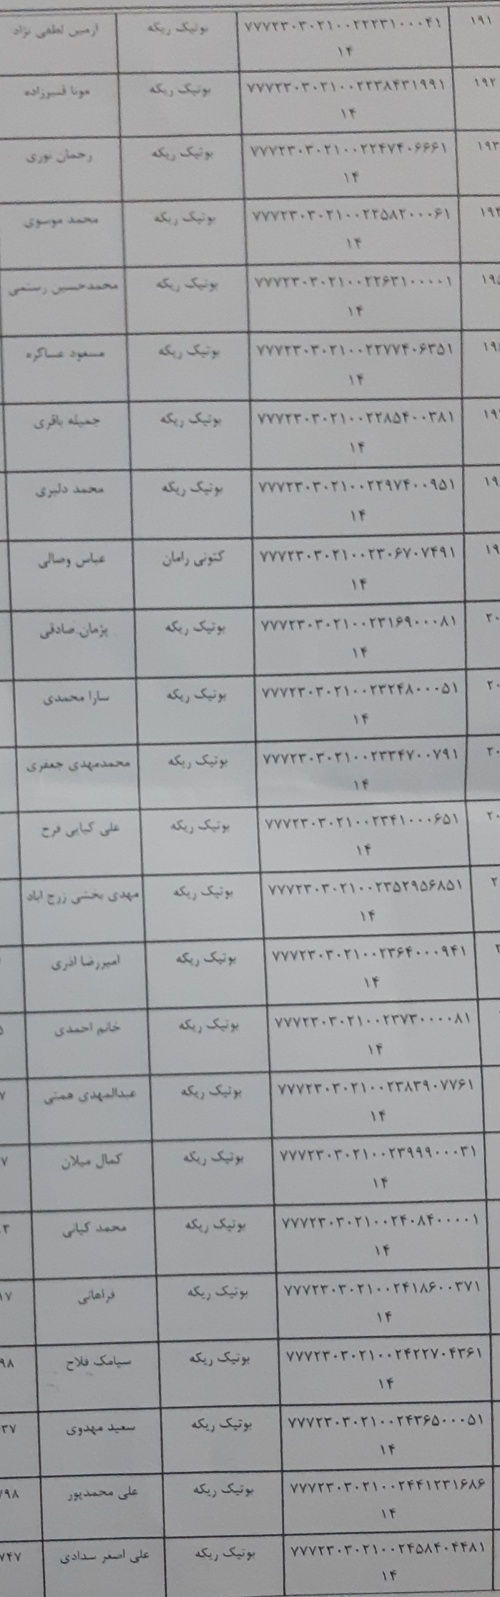 ۱۹۱ ۷۷۷۲۳۰۳۰۲۱۰۰۲۲۲۳۱۰۰۰۴۱ بوتیک ریکه آرمین لطفی نژاد
۱۴
۱۹۲ ۷۷۷۲۳۰۳۰۲۱۰۰۲۲۳۸۴۳۱۹۹۱ بوتیک ریکه مونا قنبرزاده
۱۴
۱۹۳ ۷۷۷۲۳۰۳۰۲۱۰۰۲۲۴۷۴۰۶۶۶۱ بوتیک ریکه رحمان نوری
۱۴
۱۹۴ ۷۷۷۲۳۰۳۰۲۱۰۰۲۲۵۸۲۰۰۰۶۱ بوتیک ریکه محمد موسوی
۱۴
۱۹۵ ۷۷۷۲۳۰۳۰۲۱۰۰۲۲۶۳۱۰۰۰۰۱ بوتیک ریکه محمدحسین رستمی
۱۴
۱۹ ۷۷۷۲۳۰۳۰۲۱۰۰۲۲۷۷۴۰۶۳۵۱ بوتیک ریکه مسعود عساکره
۱۴
۱۹ ۷۷۷۲۳۰۳۰۲۱۰۰۲۲۸۵۴۰۰۳۸۱ بوتیک ریکه جمیله باقری
۱۴
۱۹ ۷۷۷۲۳۰۳۰۲۱۰۰۲۲۹۷۴۰۰۹۵۱ بوتیک ریکه محمد دلیری
۱۴
۱۹ ۷۷۷۲۳۰۳۰۲۱۰۰۲۳۰۶۷۰۷۴۹۱ کتونی رامان عباس وصالی
۱۴
۲۰ ۷۷۷۲۳۰۳۰۲۱۰۰۲۳۱۶۹۰۰۰۸۱ بوتیک ریکه پژمان صادقی
۱۴
۲۰ ۷۷۷۲۳۰۳۰۲۱۰۰۲۳۲۴۸۰۰۰۵۱ بوتیک ریکه سارا محمدی
۱۴
۲۰ ۷۷۷۲۳۰۳۰۲۱۰۰۲۳۳۴۷۰۰۷۹۱ بوتیک ریکه محمدمهدی جعفری
۱۴
۲۰ ۷۷۷۲۳۰۳۰۲۱۰۰۲۳۴۱۰۰۰۶۵۱ بوتیک ریکه علی کیایی فرح
۱۴
۲ ۷۷۷۲۳۰۳۰۲۱۰۰۲۳۵۲۹۵۶۸۵۱ بوتیک ریکه مهدی بخشی زرج اباد
۱۴
۷۷۷۲۳۰۳۰۲۱۰۰۲۳۶۴۰۰۰۹۴۱ بوتیک ریکه امیررضا اذری
۱۴
۷۷۷۲۳۰۳۰۲۱۰۰۲۳۷۳۰۰۰۰۸۱ بوتیک ریکه خانم احمدی ۵
۱۴
۷۷۷۲۳۰۳۰۲۱۰۰۲۳۸۳۹۰۷۷۶۱ بوتیک ریکه عبدالمهدی همتی ۷
۱۴
۷۷۷۲۳۰۳۰۲۱۰۰۲۳۹۹۹۰۰۰۳۱ بوتیک ریکه کمال میلان ۷
۱۴
۷۷۷۲۳۰۳۰۲۱۰۰۲۴۰۸۴۰۰۰۰۱ بوتیک ریکه محمد کیانی ۳
۱۴
۷۷۷۲۳۰۳۰۲۱۰۰۲۴۱۸۶۰۰۳۷۱ بوتیک ریکه فراهانی ۱۷
۱۴
۷۷۷۲۳۰۳۰۲۱۰۰۲۴۲۲۷۰۴۳۶۱ بوتیک ریکه سیامک فلاح ۹۸
۱۴
۷۷۷۲۳۰۳۰۲۱۰۰۲۴۳۶۵۰۰۰۵۱ بوتیک ریکه سعید مهدوی ۳۷
۱۴
۷۷۷۲۳۰۳۰۲۱۰۰۲۴۴۱۲۳۱۶۸۶ بوتیک ریکه علی محمدپور ۷۹۸
۱۴
۷۷۷۲۳۰۳۰۲۱۰۰۲۴۵۸۴۰۴۴۸۱ بوتیک ریکه علی اصغر سدادی ۷۴۷
۱۴